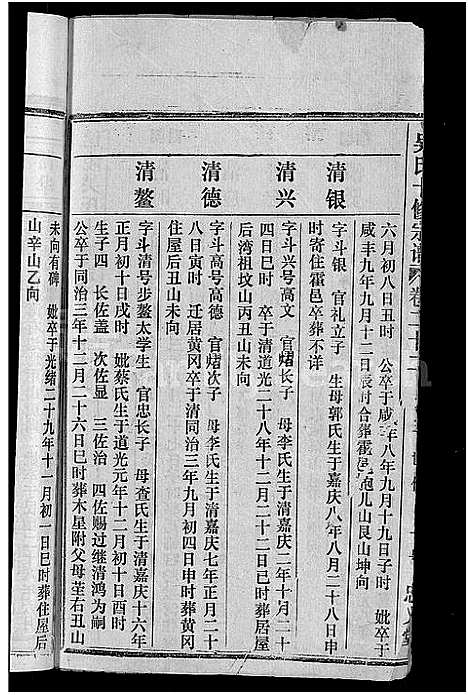 吴氏十修宗谱 卷二十二
六月初八日丑时 公卒于咸丰八年九月十九日子时 妣卒于
咸丰九年九月十二日辰时合葬霍邑 儿山艮山坤向
清银
字斗银 官礼立子 生母郭氏生于嘉庆八年八月二十八日申
时寄住霍邑卒葬不详
清兴
字斗兴号高文 官㸅长子 母李氏生于清嘉庆二年十月二十
四日巳时 卒于清道光二十八年十二月二十二日巳时葬居屋
后湾祖坟山丙丑山未向
清德
字斗高号高德 官㸅次子 母李氏生于清嘉庆七年正月二十
八日寅时 迁居黄冈卒于清同治三年九月初四日申时葬黄冈
住屋后丑山未向
清鳌
字斗清号步鳌太学生 官忠长子 母查氏生于清嘉庆十六年
正月初十日戌时 妣蔡氏生于道光元年十二月初十日酉时
生子四 长佐盖 次佐显 三佐治 四佐赐过继清鸿为嗣
公卒于同治三年十二月二十六日巳时葬木星附父母茔右丑山
未向有碑 妣卒于光绪二十九年十一月初一日巳时葬住屋后
山辛山乙向